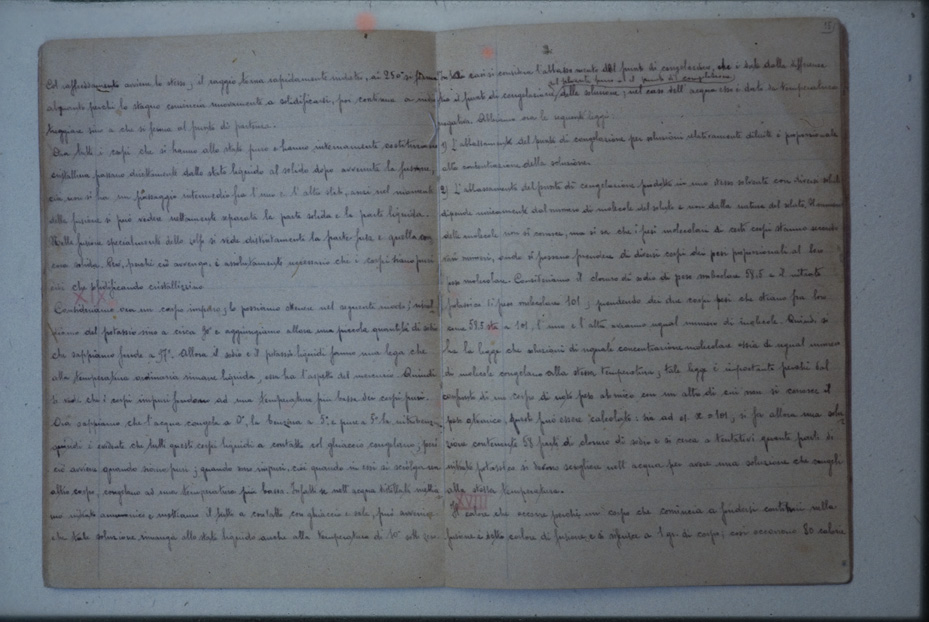 Col raffreddamento avviene lo stesso; il raggio torna rapidamente indietro, ai 250° si ferma
alquanto perché lo stagno comincia nuovamente a solidificarsi, poi continua a
sino a che si ferma al punto di partenza.
Ora tutti i corpi che si hanno allo stato puro e hanno internamente costituzione
cristallina passano direttamente dallo stato liquido al solido dopo avvenuta la fusione,
cioè non si ha un passaggio intermedio fra l'uno e l'altro stato, anzi nel momento
della fusione si può vedere nettamente separata la parte solida e la parte liquida.
Nella fusione specialmente dello zolfo si vede distintamente la parte fusa e quella
solida. Però, perché ciò avvenga, è assolutamente necessario che i corpi siano puri
cioè che solidificando cristallizzino
XIX
Consideriamo ora un corpo impuro; lo possiamo ottenere nel seguente modo:
del potassio sino a circa 90° e aggiungiamo allora una piccola quantità di sodio
che sappiamo fonde a 97°. Allora il sodio e il potassio liquidi fanno una lega che
alla temperatura ordinaria rimane liquida, essa ha l'aspetto del mercurio. Quindi
si vede che i corpi impuri fondono ad una temperatura più bassa dei corpi puri.
Ora sappiamo, che l'acqua congela a 0°, la benzina a 5° e pure a 5° la
quindi è evidente che tutti questi corpi liquidi a contatto col ghiaccio congelano, però
ciò avviene quando sono puri; quando sono impuri, cioè quando in essi si sciolga un
altro corpo, congelano ad una temperatura più bassa. Infatti se nell'acqua distillata
nitrato ammonico e mettiamo il tutto a contatto con ghiaccio e sale, può avvenire
che tale soluzione rimanga allo stato liquido anche alla temperatura di 10° sotto zero.
3.
casi si considera l'abbassamento del punto di congelazione, che è dato dalla differenza
del solvente puro ed il punto di congelazione
fra il punto di congelazione della soluzione; nel caso dell'acqua esso è dato da temperatura
negativa. Abbiamo ora le seguenti leggi:
1) L'abbassamento del punto di congelazione per soluzioni relativamente diluite è proporzionale
alla concentrazione della soluzione.
2) L'abbassamento del punto di congelazione prodotto in uno stesso solvente con diversi soluti
dipende unicamente dal numero di molecole del soluto e non dalla natura del soluto. Il numero
delle molecole non si conosce, ma si sa che i pesi molecolari di certi corpi stanno secondo
vari numeri, onde si possono prendere di diversi corpi dei pesi proporzionali al loro
peso molecolare. Consideriamo il cloruro di sodio di peso molecolare 58.5 e il nitrato
potassico di peso molecolare 101; prendendo dei due corpi pesi che stiano fra loro
come 58.5 sta a 101, l'uno e l'altro avranno ugual numero di molecole. Quindi si
ha la legge che soluzioni di uguale concentrazione molecolare ossia di ugual numero
di molecole congelano alla stessa temperatura; tale legge è importante perché dal
composto di un corpo di noto peso atomico con un altro di cui non si conosce il
peso atomico, questo può essere calcolato: sia ad es. x = 101, si fa allora una
soluzione contenente 58 parti di cloruro di sodio e si cerca a tentativi quante parti di
nitrato potassico si devono sciogliere nell'acqua per avere una soluzione che congeli
alla stessa temperatura.
XVIII
Il calore che occorre perché un corpo che comincia a fondersi continui nella
fusione è detto calore di fusione e si riferisce a 1 gr. di corpo; così occorrono 80 calorie